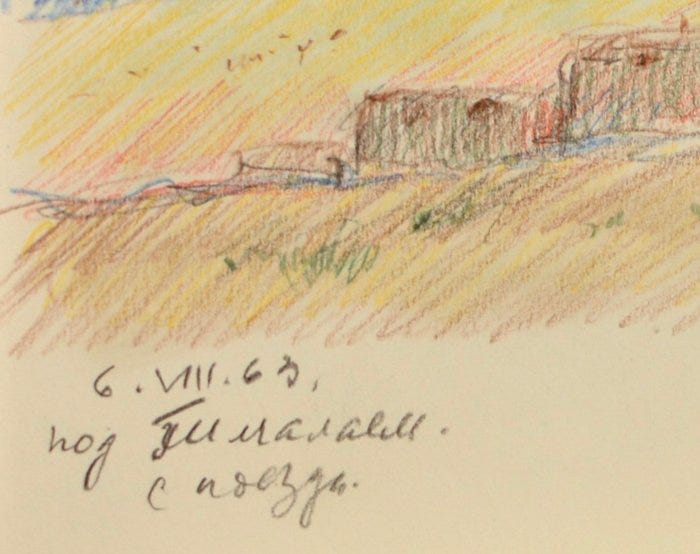 6.VIII.63.
под Гималаем.
с поезда.